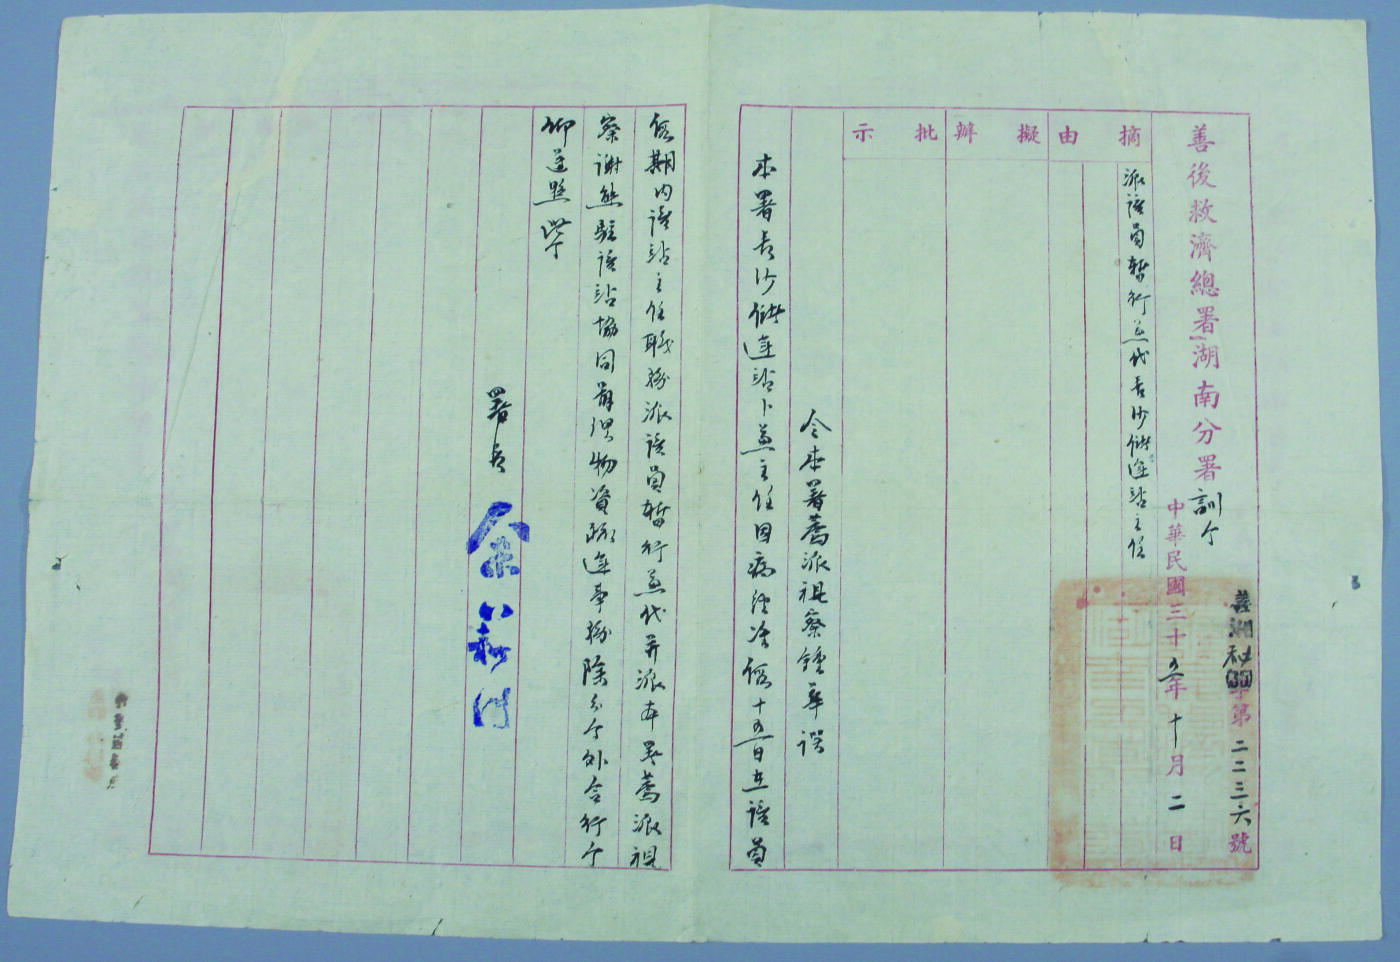 善後救濟總署湖南分署訓令
善湘秘字第二二三六號
中華民國三十五年十月二日
摘由
擬辦
批示
派該員暫行兼代長沙儲運站主任
令本署薦派視察鍾
本署長沙儲運站卜兼主任因病請准假十五日在該員
假期內該站主任職務派該員暫行兼代并派本署薦派視
察謝熊駐該站協同辦理物資疏運事務除分令外合行令
仰遵照此令
署長 余籍傳